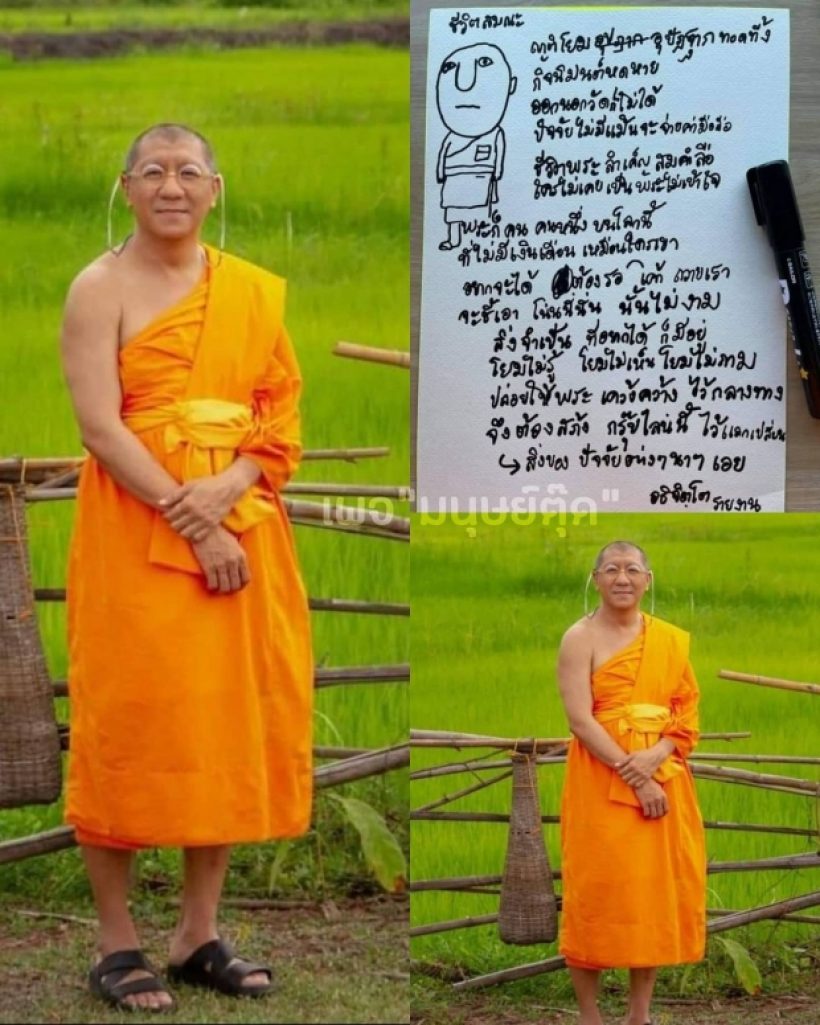 ชีวิตสมณะ
ญาติโยม อุปัฏฐาก ทอดทิ้ง
กิจนิมนต์หดหาย
ออกนอกวัดก็ไม่ได้
ปัจจัยไม่มีแม้นจะจ่ายค่ามือถือ
ชีวิตพระ ลำเค็ญ สมคำลือ
ใครไม่เคยเป็นพระไม่เข้าใจ
พระก็ คน คนหนึ่ง บนโลกนี้
ที่ไม่มีเงินเดือน เหมือนใครเขา
อยากจะได้ ต้องรอ เค้า ถวายเรา
จะชี้เอา โน่นนี่นั่น นั้นไม่งาม
สิ่งจำเป็น ที่อยากได้ ก็มีอยู่
โยมไม่รู้ โยมไม่เห็น โยมไม่ถาม
ปล่อยให้พระ เคว้งคว้าง ไว้กลางทาง
จึงต้องสร้าง กรุ๊ปไลน์นี้ ไว้แลกเปลี่ยน
สิ่งของ ปัจจัยต่างๆนาๆ เอย
อธิจิตฺโต
รายงาน
เพจ "มนุษย์ตุ๊ด"